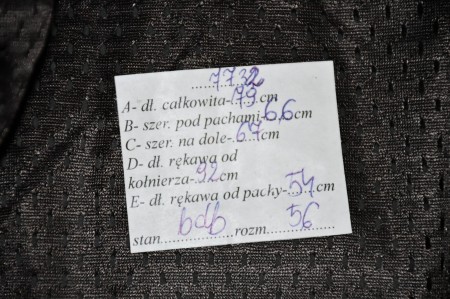 ......7732
A- dł. całkowita-.79.cm
B- szer. pod pachami-66cm
C- szer. na dole-.67.cm
D- dł. rękawa od
kołnierza-.92cm
E- dł. rękawa od pachy-.54.cm
stan....bdb....rozm....56....